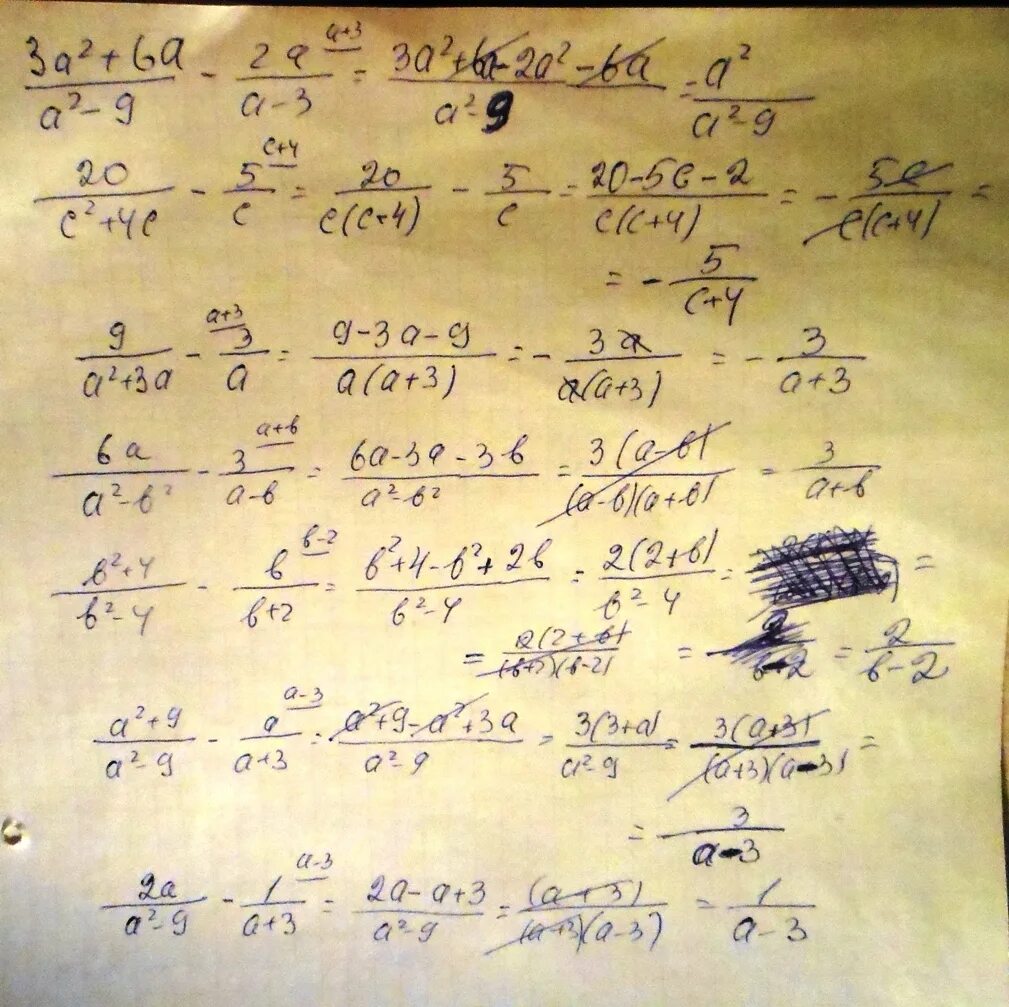 (3a²+6a)/(a²-9) - 2a/(a-3) ^(a+3) = (3a²+6a-2a²-6a)/(a²-9) = a²/(a²-9)
20/(c²+4c) - 5/c ^(c+4) = 20/(c(c+4)) - 5/c = (20-5c-2)/(c(c+4)) = - 5c/(c(c+4)) =
= - 5/(c+4)
9/(a²+3a) - 3/a ^(a+3) = (9-3a-9)/(a(a+3)) = - 3a/(a(a+3)) = - 3/(a+3)
6a/(a²-в²) - 3/(a-в) ^(a+в) = (6a-3a-3в)/(a²-в²) = 3(a-в)/((a-в)(a+в)) = 3/(a+в)
(в²+4)/(в²-4) - в/(в+2) ^(в-2) = (в²+4-в²+2в)/(в²-4) = 2(2+в)/(в²-4) = =
= 2(2+в)/((в+2)(в-2)) = = 2/(в-2)
(a²+9)/(a²-9) - a/(a+3) ^(a-3) = (a²+9-a²+3a)/(a²-9) = 3(3+a)/(a²-9) = 3(a+3)/((a+3)(a-3)) =
= 3/(a-3)
2a/(a²-9) - 1/(a+3) ^(a-3) = (2a-a+3)/(a²-9) = (a+3)/((a+3)(a-3)) = 1/(a-3)